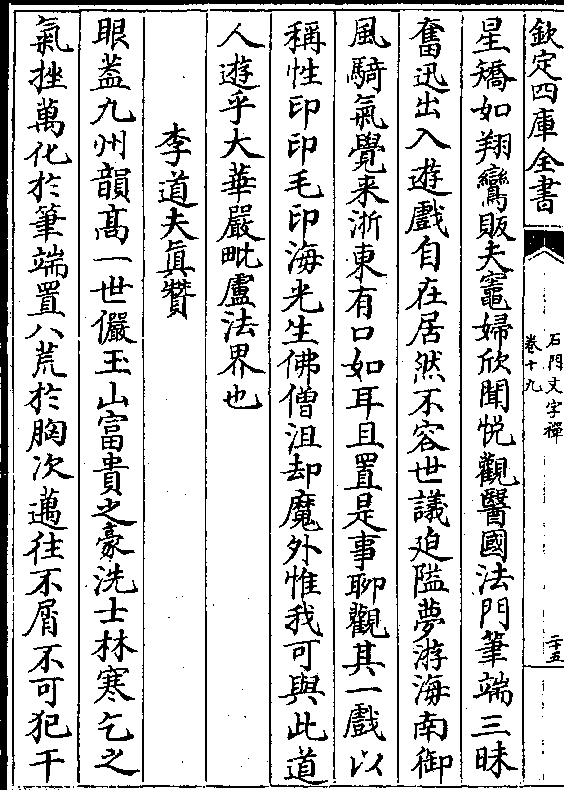 欽定四庫全書
石門文字禪
卷十九
二十五
星矯如翔鸞販夫竈婦欣聞悦觀醫國法門筆端三昧
奮迅出入遊戲自在居然不容世議廹隘夢游海南御
風騎氣覺来浙東有口如耳且置是事聊觀其一戲以
稱性印印毛印海光生佛僧沮却魔外惟我可與此道
人遊乎大華嚴毗盧法界也
李道夫真賛
眼葢九州韻髙一世儼玉山富貴之豪洗士林寒乞之
氣挫萬化於筆端置八荒於胸次邁往不屑不可犯干